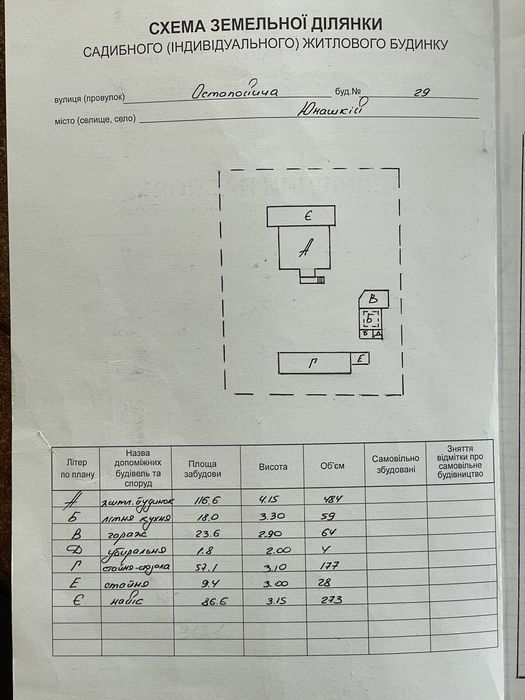 СХЕМА ЗЕМЕЛЬНОЇ ДІЛЯНКИ
САДИБНОГО (ІНДИВІДУАЛЬНОГО) ЖИТЛОВОГО БУДИНКУ
вулиця (провулок) буд.№ 29
місто (селище, село) Юнашків
Є
А
В
Б
Г Е
Літер по плану Назва допоміжних будівель та споруд Площа забудови Висота Об'єм Самовільно збудовані Зняття відмітки про самовільне будівництво
А житл. будинок 116.6 4.15 484
Б літня кухня 18.0 3.30 59
В гараж 23.6 2.90 64
Д убиральня 1.8 2.00 4
Г 57.1 3.10 177
Е стайня 9.4 3.00 28
Є навіс 86.6 3.15 273